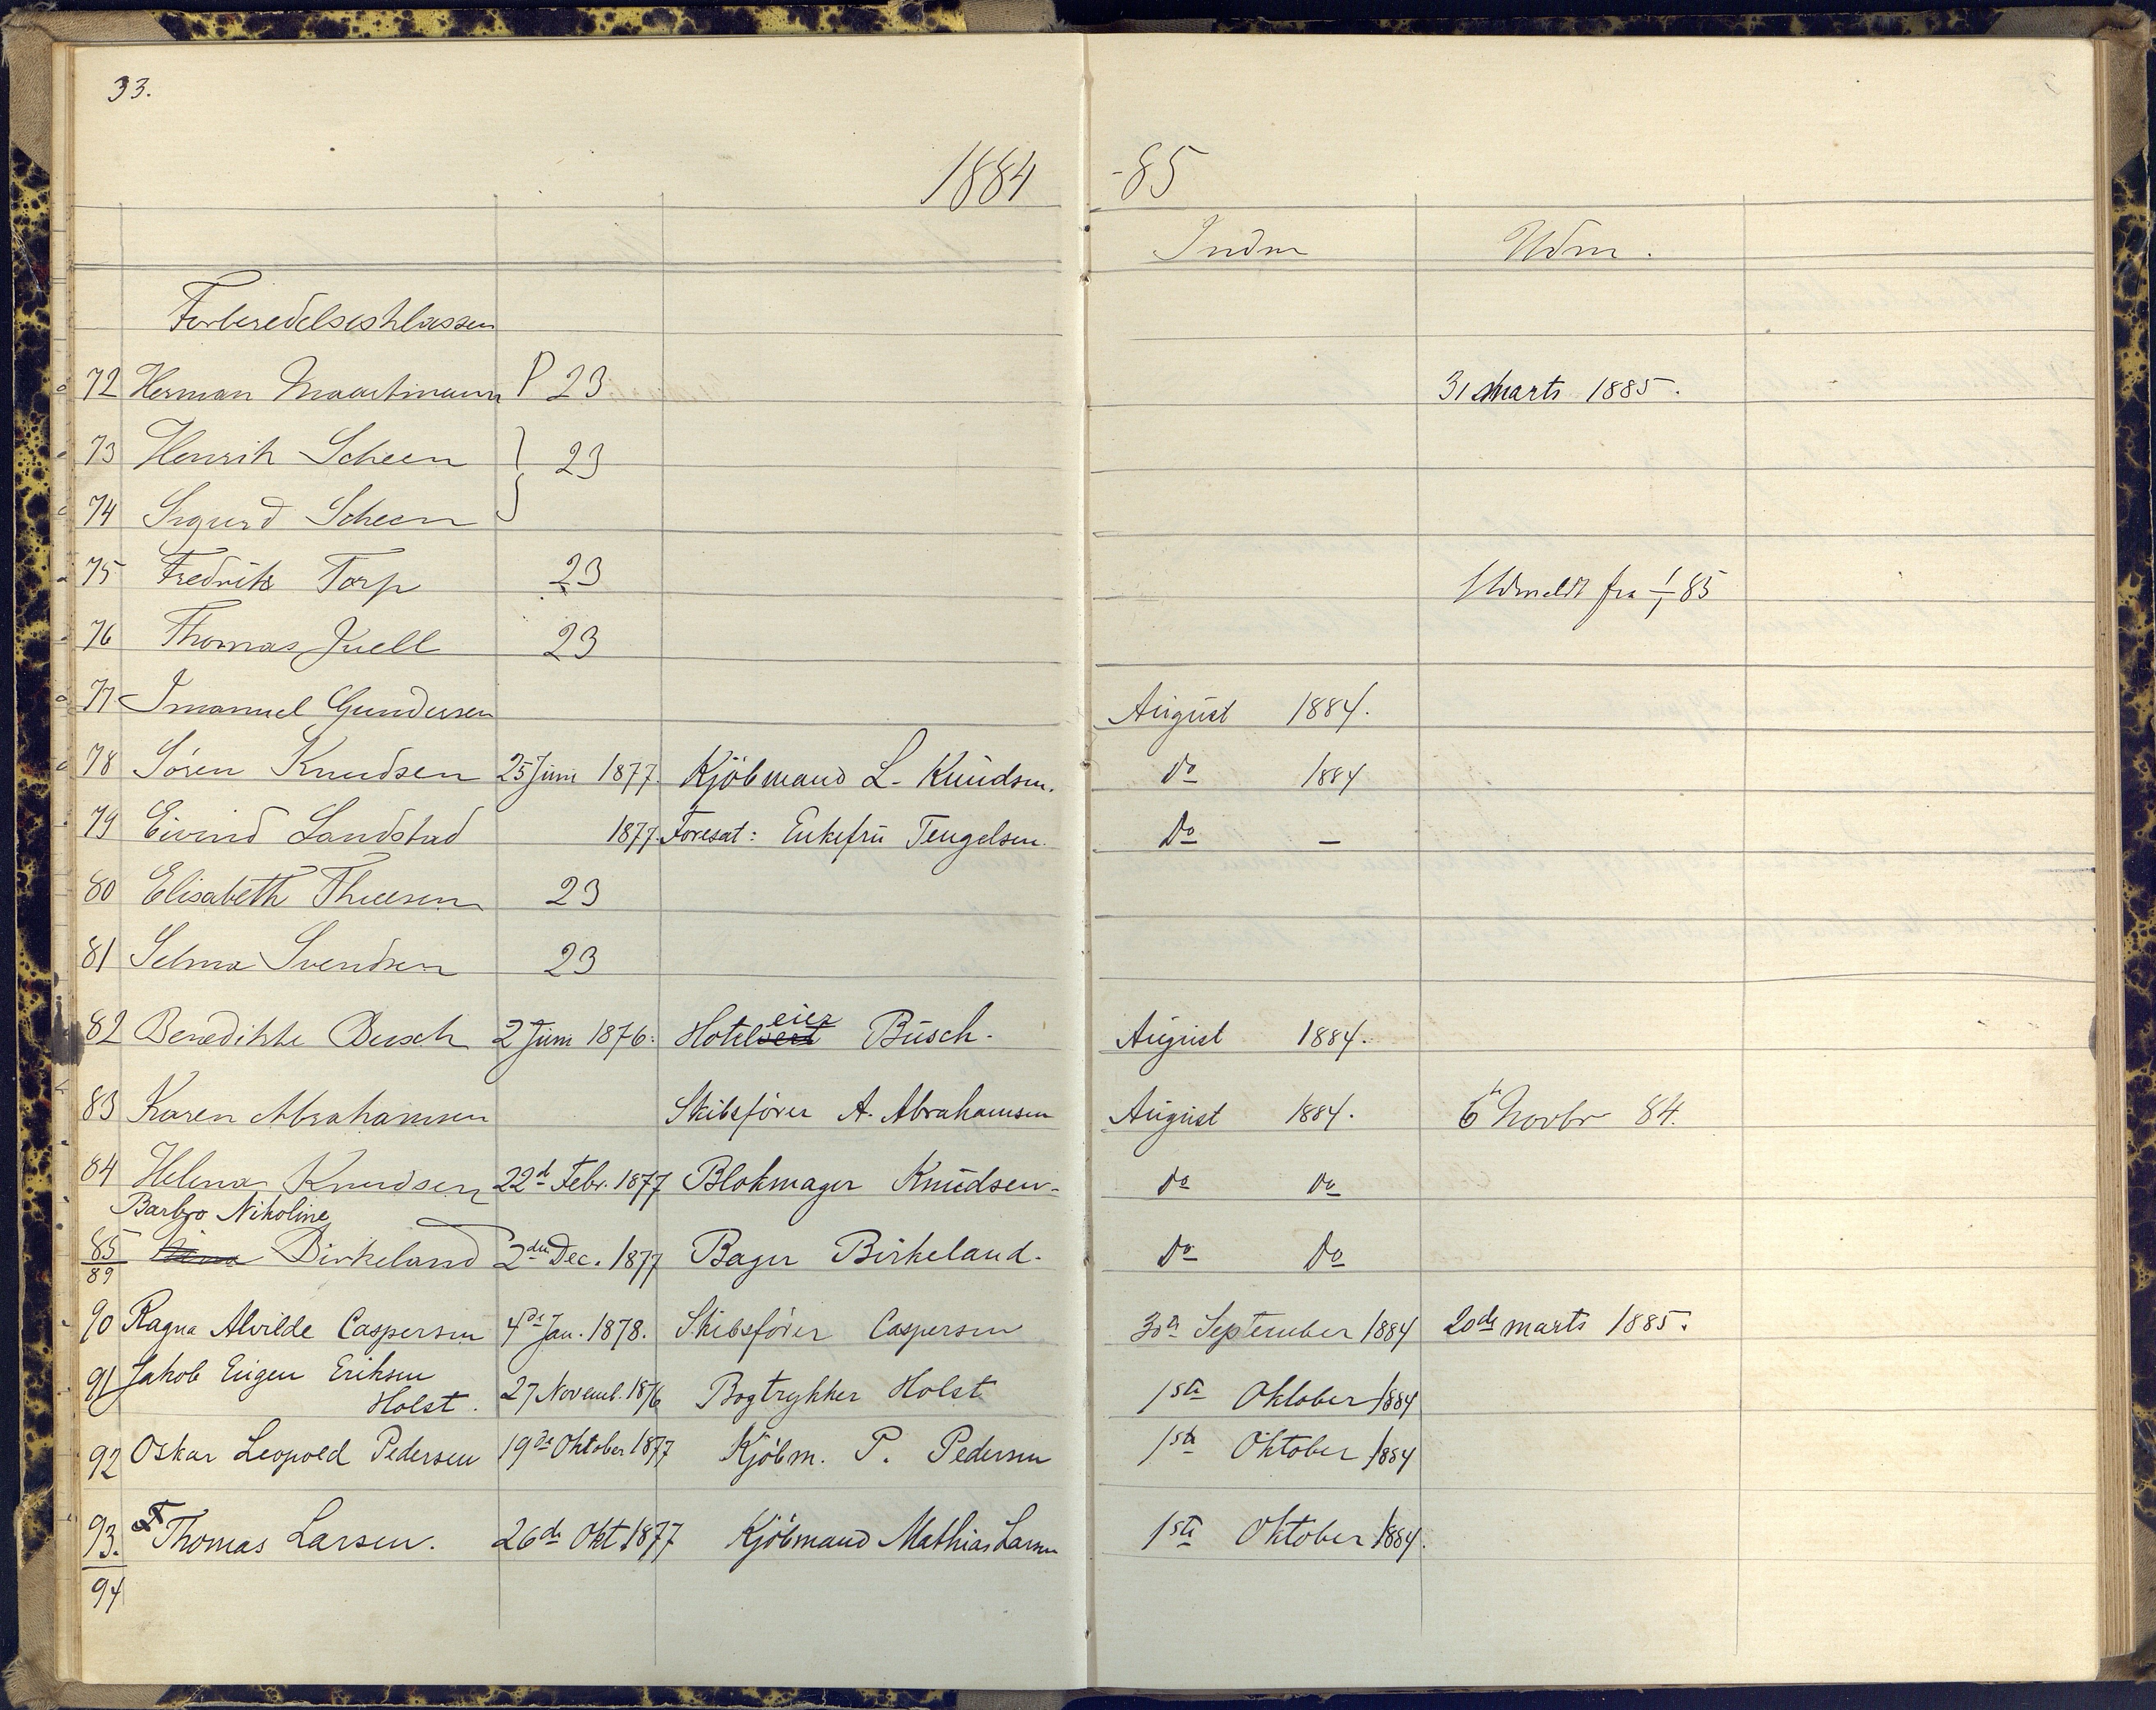 33.
1884 -85
Indm Udm.
Forberedelsesklassen
72 Herman Maartmann P 23 31 Marts 1885.
73 Henrik Scheen } 23
74 Sigurd Scheen
75 Fredrik Torp 23 Udmeldt fra 1/1 85
76 Thomas Juell 23
77 Imanuel Gundersen August 1884.
78 Sören Knudsen 25 Juni 1877. Kjöbmand L. Knudsen. do 1884
79 Eivind Landstad 1877. Foresat: Enkefru Tengelsen. Do —
80 Elisabeth Thuesen 23
81 Selma Svendsen 23
82 Benedikte Busch 2 Juni 1876. Hoteleier Busch. August 1884.
83 Karen Abrahamsen Skibsfører A. Abrahamsen August 1884. 6te Novbr 84.
84 Helena Knudsen 22d Febr. 1877 Blokmager Knudsen. do do
Barbro Nikoline
85 Birkeland 2den Dec. 1877 Bager Birkeland. Do Do
89
90 Ragna Alvilde Caspersen 4de Jan. 1878. Skibsförer Caspersen 30te September 1884 20de marts 1885.
91 Jakob Eugen Eriksen
Holst. 27 Novemb. 1876 Bogtrykker Holst 1ste Oktober 1884
92 Oskar Leopold Pedersen 19de Oktober 1877 Kjöbm. P. Pedersen 1ste Oktober 1884
93. Thomas Larsen. 26de Okt. 1877 Kjöbmand Mathias Larsen 1ste Oktober 1884.
94